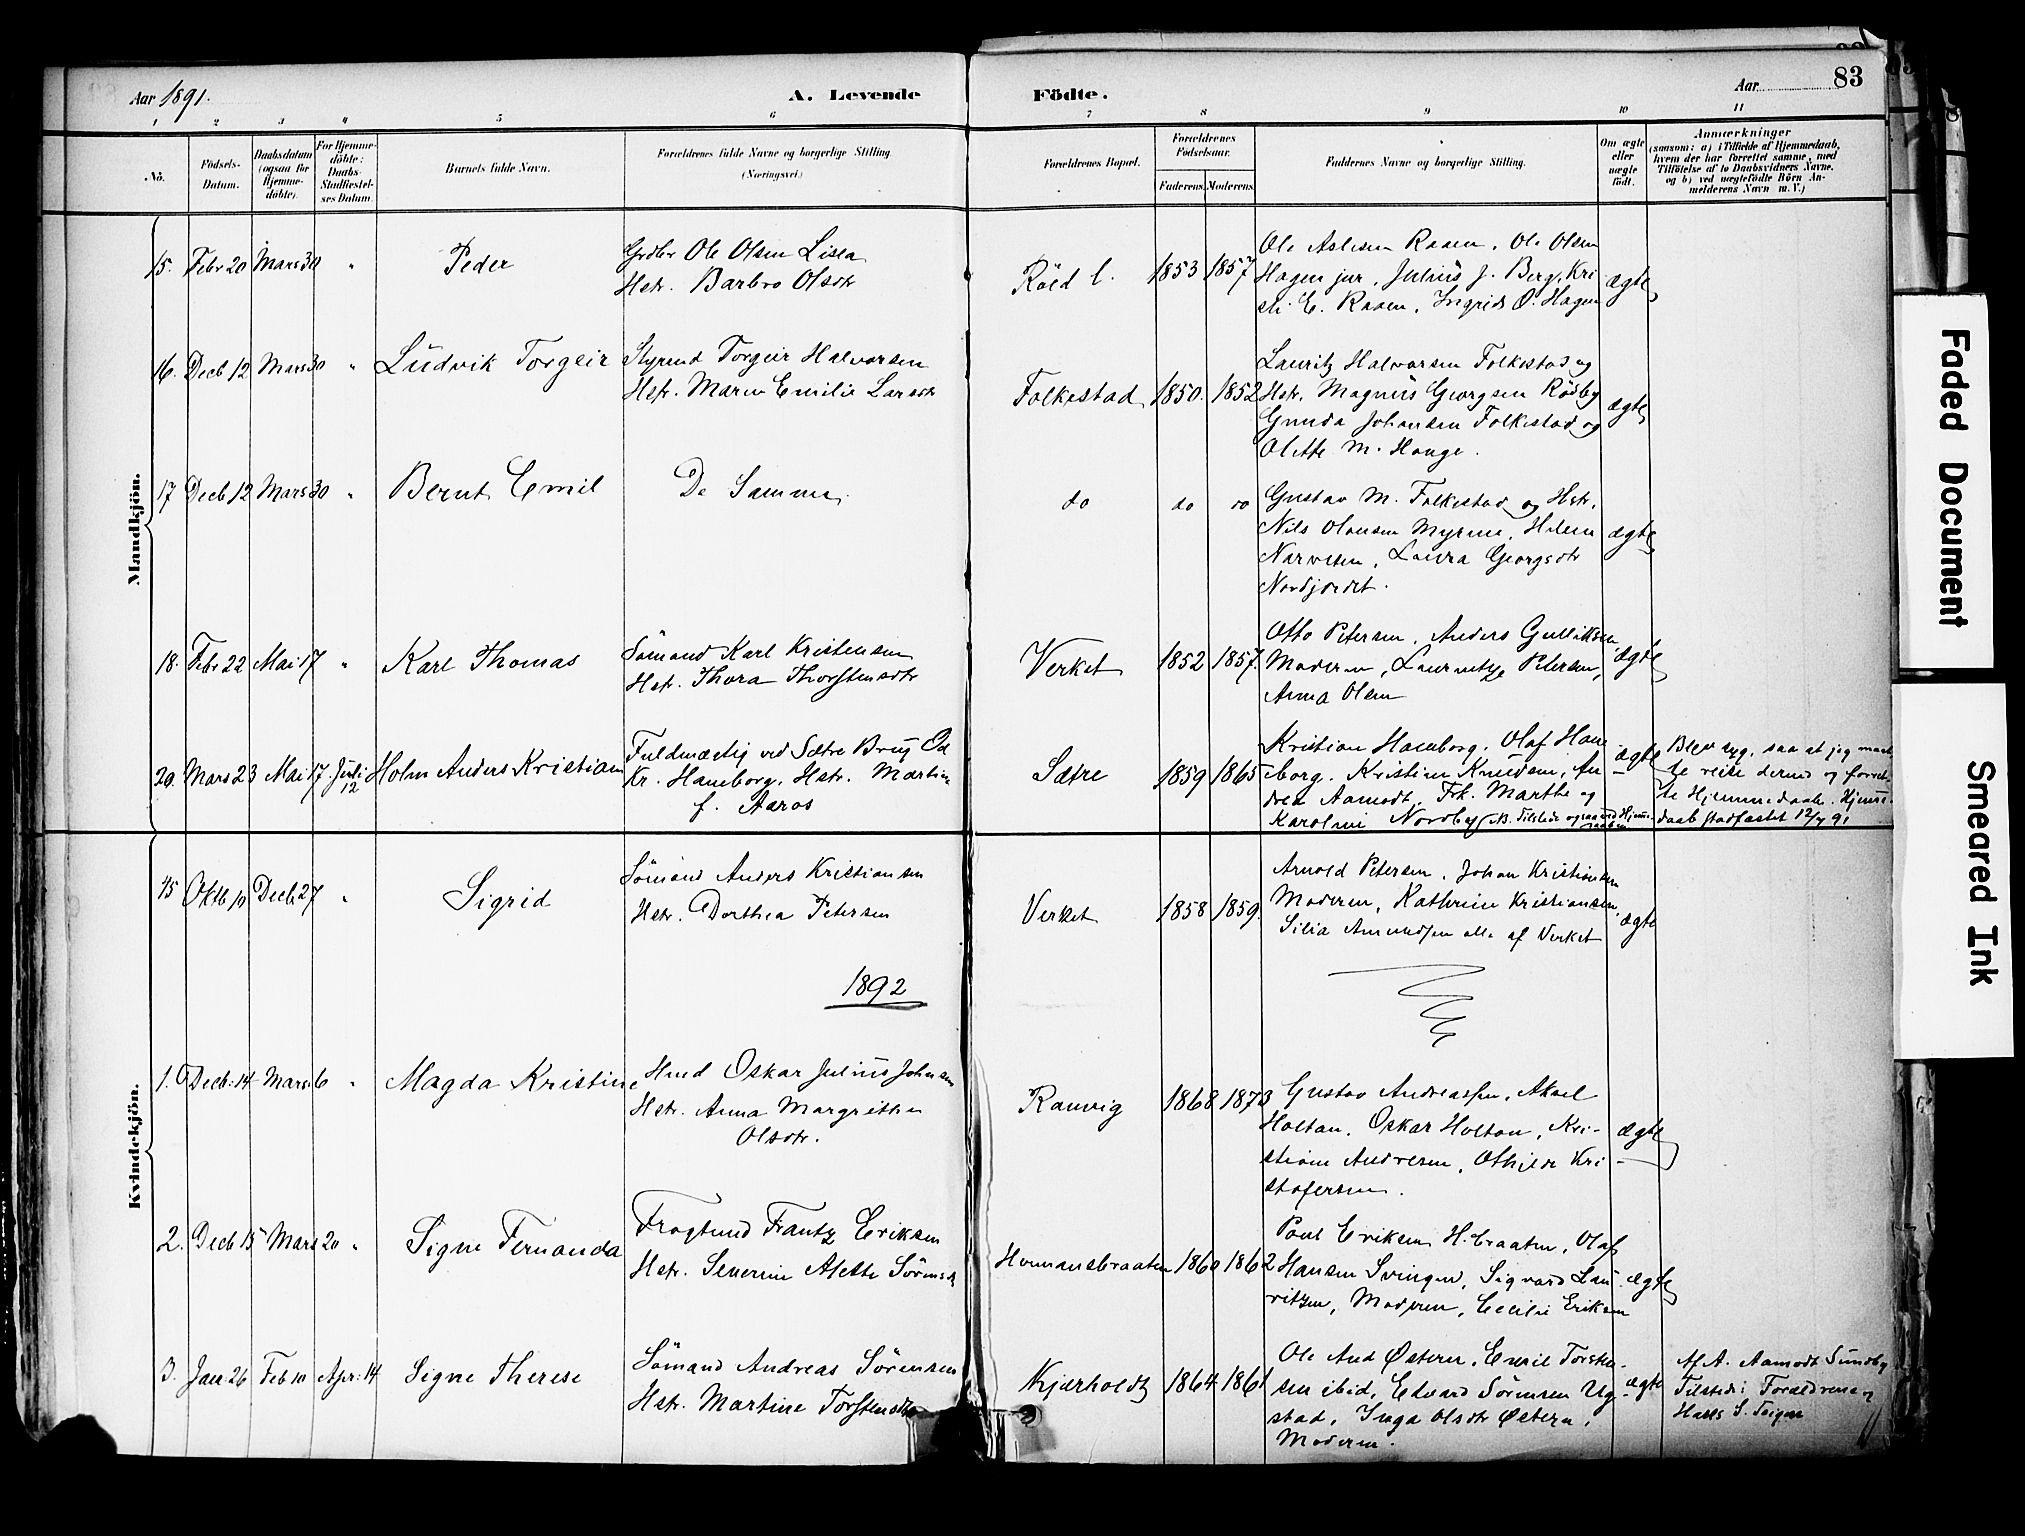 83
Aar 1891.
A. Levende
Födte.
Aar
1 2 3 4 5 6 7 8 9 10 11
No.
Födsels-
Datum.
Daabsdatum
(ogsaa for
Hjemme-
döbte).
For Hjemme-
döbte:
Daabs-
Stadfæstel-
ses Datum.
Barnets fulde Navn.
Forældrenes fulde Navne og borgerlige Stilling.
(Næringsvei.)
Forældrenes Bopæl.
Forældrenes
Födselsaar.
Faderens.
Moderens.
Faddernes Navne og borgerlige Stilling.
Om ægte
eller
uægte
født.
Anmærkninger
(saasom: a) i Tilfælde af Hjemmedaab,
hvem der har forrettet samme, med
Tilföielse af to Daabsvidners Navne,
og b) ved uægtefödte Börn An-
melderens Navn m. V.)
Mandkjön.
15. Febr 20 Mars 30 " Peder
Grdbr Ole Olsen Lisla
Hstr. Barbro Olsdtr
Röed l. 1853 1857
Ole Aslesen Raaen, Ole Olsen
Hagen jur, Julius J. Berg, Kri
sti E. Raaen, Ingrid O. Hagen
ægte
16. Decb 12 Mars 30 " Ludvik Torgeir
Styrmd Torgeir Halvorsen
Hstr. Maren Emilie Larsdtr
Folkestad 1850. 1852
Lauritz Halvorsen Folkestad og
Hstr, Magnus Georgsen Rödby
Gunda Johansen Folkestad og
Olette M. Hauge.
ægte
17 Decb 12 Mars 30 " Bernt Emil
De Samme
do do do
Gustav M. Folkestad og Hstr.
Nils Olausen Myrene, Helene
Narvesen, Laura Georgsdtr
Nordjordet.
ægte
18. Febr 22 Mai 17 " Karl Thomas
Sömand Karl Kristensen
Hstr. Thora Thorstensdtr
Verket 1852 1857.
Otto Petersen, Anders Gulliksen,
Moderen, Petersen,
Anna Olsen
ægte
20. Mars 23 Mai 17 Juli 12 Holm Anders Kristian
Fuldmægtig ved Sætre Brug
Kr. Haneborg, Hstr. Martine
f. Aaros
Sætre 1859 1865
Kristian Haneborg, Olaf Hane
borg. Kristine Knudsen, An
drea Aamodt, Frk. Marthe og
Karoline Nordby
ægte
Blev syg, saa at jeg maat
te reise derned og forret
te Hjemmedaab. Hjemme
daab stadfæstet 12/7 91
Kvindekjön.
45 Oktb 10 Decb 27 " Sigrid
Sömand Anders Kristiansen
Hstr. Dorthea Petersen
Verket 1858 1859.
Arnold Petersen, Johan Kristiansen
Moderen, Kathrine Kristiansen,
Silia Amundsen alle af Verket
ægte
1892
1. Decb: 14 Mars 6 " Magda Kristine
Hmd Oskar Julius Johnsen
Hstr. Anna Margrethe
Olsdtr.
Ramvig 1868 1873
Gustav Andreassen, Aksel
Holtan, Oskar Holtan, Kri-
stiane Andresen, Othilde Kri-
stofersen.
ægte
2. Decb 15 Mars 20 " Signe Fernanda
Fragtmd Frantz Eriksen
Hstr. Severine Alette Sörensd
Homansbraaten 1860 1862
Paul Eriksen H.braaten, Olaf
Hansen Svingen, Sigvard Lau
ritzen, Moderen, Cecilie Eriksen
ægte
3. Jan: 26 Feb 10 Apr: 14 Signe Therese
Sömand Andreas Sörensen
Hstr. Martine Torstensdtr
Kjærholdt 1864 1861
Ole And Østern, Emil Torsten-
sen ibid, Edvard Sörensen Ug-
stad, Inga Olsdtr Østern,
Moderen.
ægte
Af A. Aamodt Sundby
Tilstede: Forældrene og
Hans S. Teigen
Faded Document
Smeared Ink